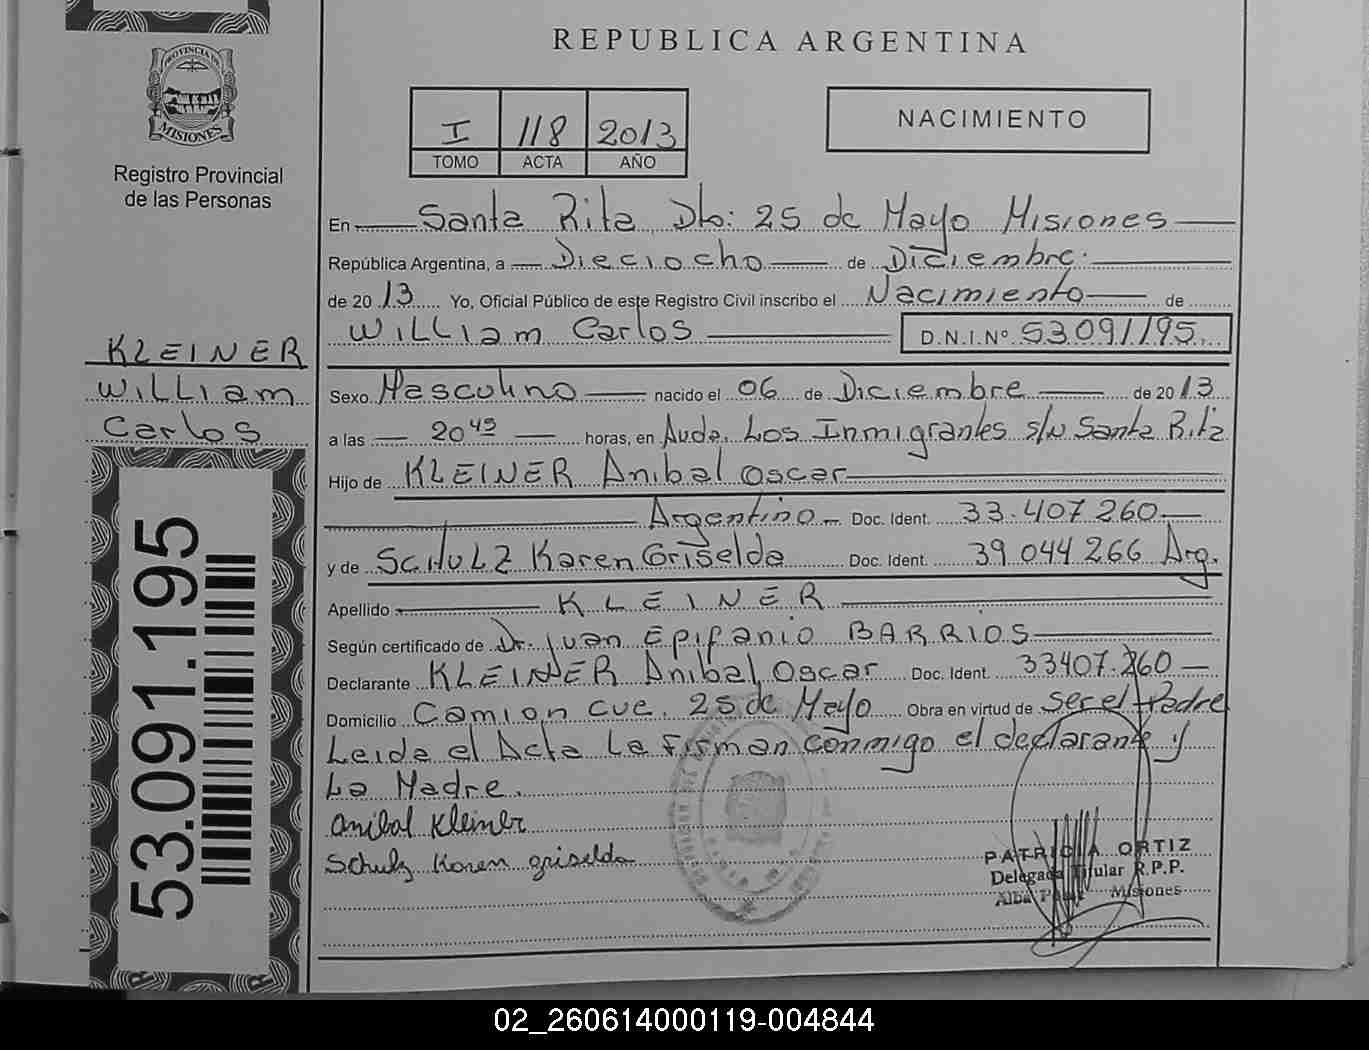 REPUBLICA ARGENTINA
PROVINCIA DE
MISIONES
Registro Provincial
de las Personas
I 118 2013
TOMO ACTA AÑO
NACIMIENTO
En Santa Rita Dto: 25 de Mayo Misiones
República Argentina, a Dieciocho de Diciembre.
de 2013 Yo, Oficial Público de este Registro Civil inscribo el Nacimiento de
William Carlos D.N.I.Nº 53.091.195
KLEINER
William
Carlos
53.091.195
Sexo Masculino nacido el 06 de Diciembre de 2013
a las 20 45 horas, en Avda. Los Inmigrantes s/N Santa Rita
Hijo de KLEINER Anibal Oscar
Argentino Doc. Ident. 33.407 260
y de SCHULZ Karen Griselda Doc. Ident. 39 044 266 Arg.
Apellido KLEINER
Según certificado de Dr. Juan Epifanio BARRIOS
Declarante KLEINER Anibal Oscar Doc. Ident. 33407.260
Domicilio Camion cue. 25 de Mayo Obra en virtud de ser el Padre
Leida el Acta La Firman conmigo el declarante y
La Madre.
Anibal Kleiner
Schulz Karen griselda
PATRICIA ORTIZ
Delegada Titular R.P.P.
Alba Posse Misiones
02_260614000119-004844